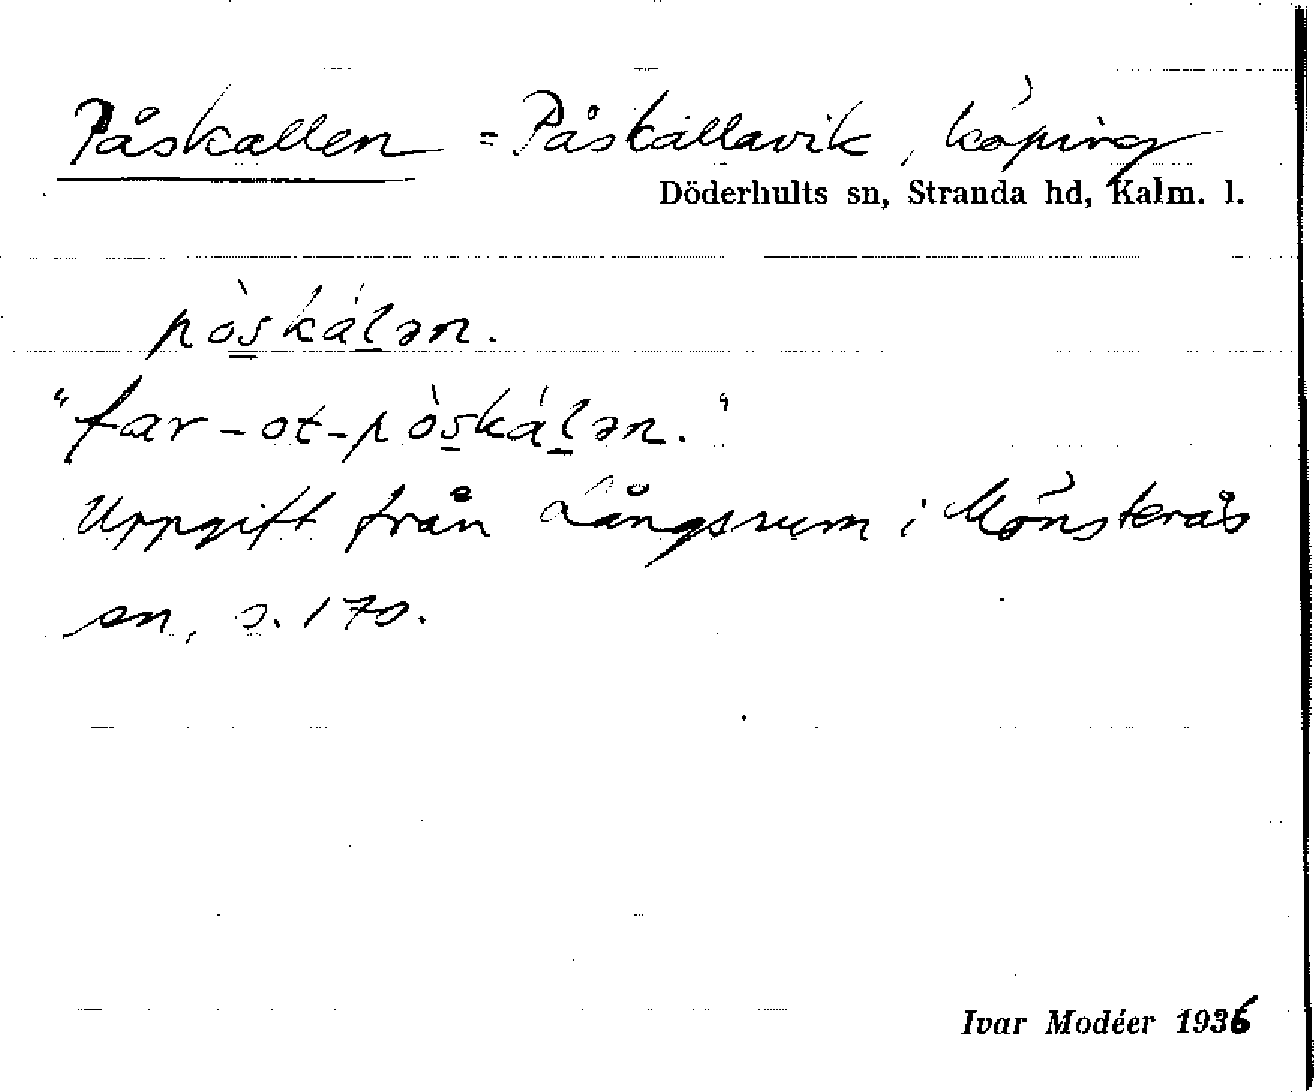 Påskallen = Påskallavik, köping
Döderhults sn, Stranda hd, Kalm. l.
pòskálən.
"far-ot-pòskálən."
Uppgift från Långsrum i Mönsterås
sn, s. 170.
Ivar Modéer 1936